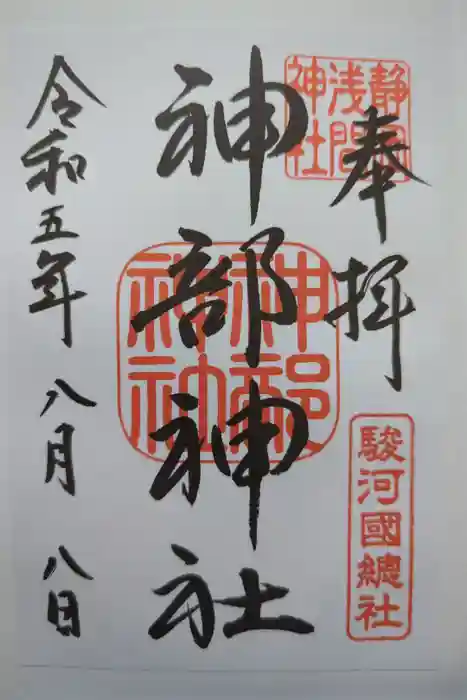 奉拝
静岡浅間神社
駿河國總社
神部神社
神部神社
令和五年八月八日